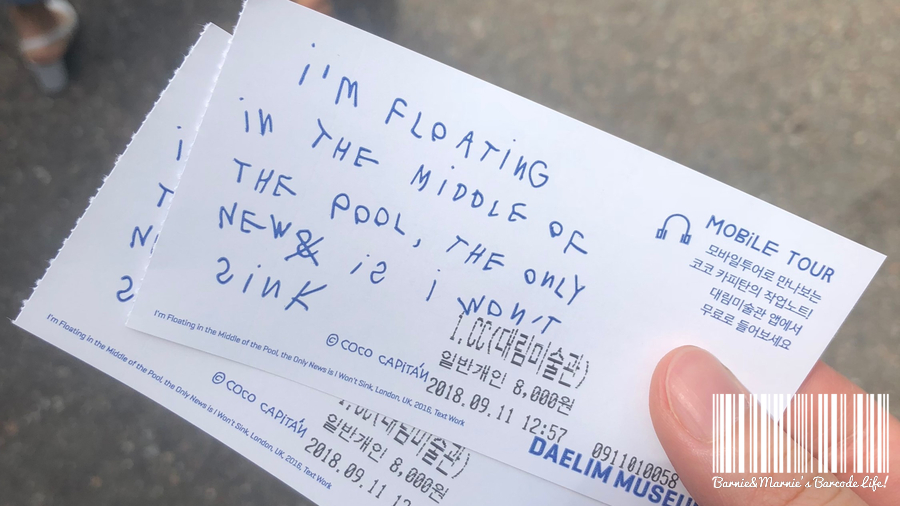 i'M FLOATiNG
iN THE MiDDLE OF
THE POOL, THE ONLY
NEWS iS i WON'T
SiNK
MOBiLE TOUR
모바일투어로 만나보는
코코 카피탄의 작업노트!
대림미술관 앱에서
무료로 들어보세요
I'm Floating in the Middle of the Pool, the Only News is I Won't Sink, London, UK, 2016, Text Work
© COCO CAPITÁN
1.CC(대림미술관)
일반개인 8,000원
2018.09.11 12:57
0911010058
DAELIM MUSEU
i
T
N
S
I'm Floating in the Middle of the Pool, the Only News is I Won't Sink, London, UK, 2016, Text Work
© COCO CAPITÁN
1.CC(대림미술관)
일반개인 8,000원
2018.09.11 12
Barnie&Marnie's Barcode Life!